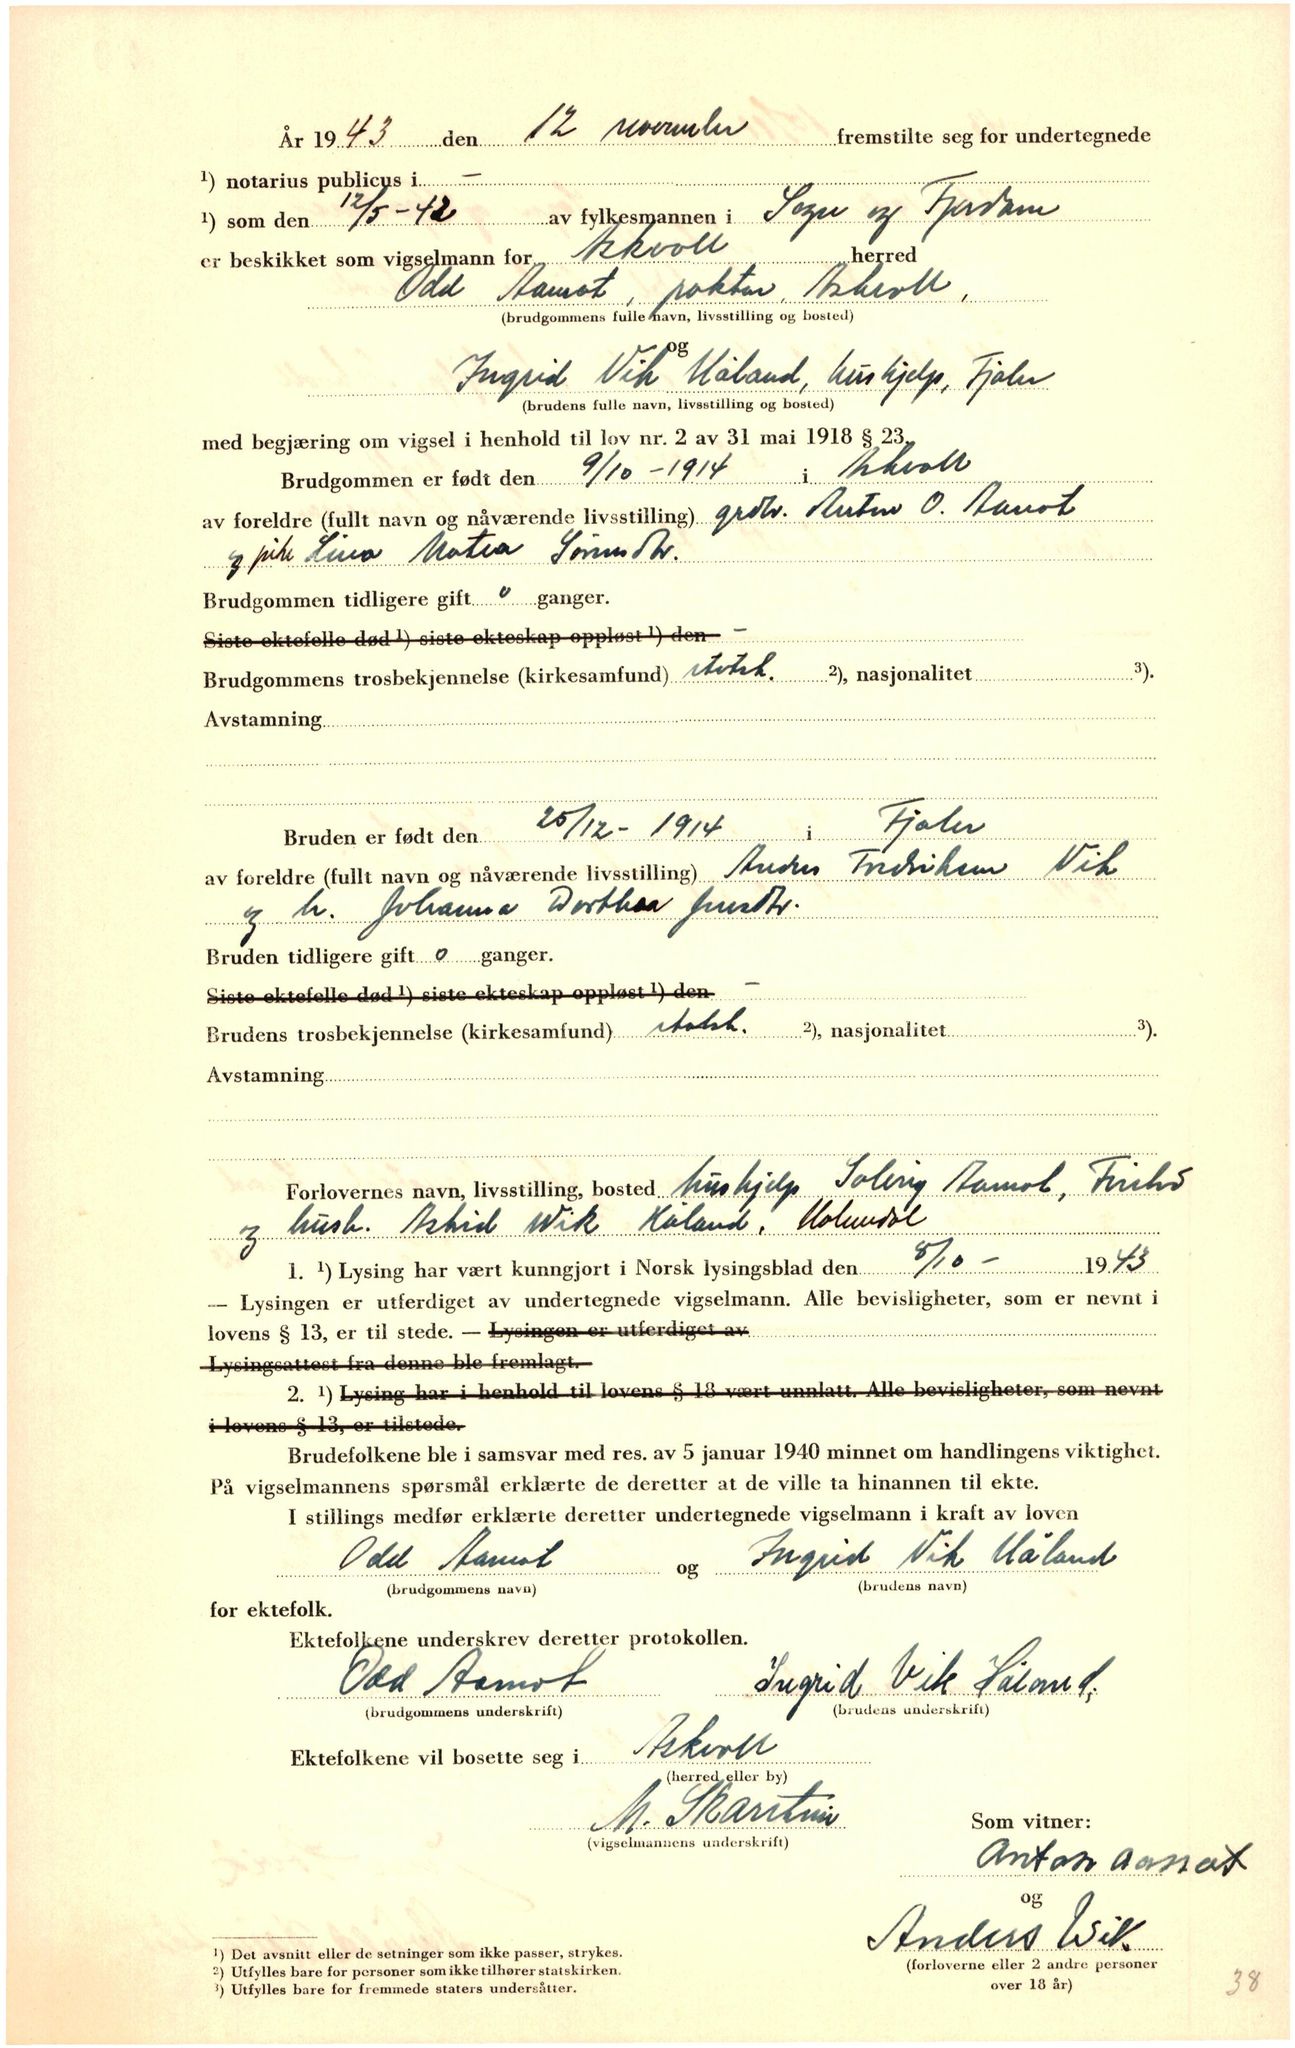 År 1943 den 12 november fremstilte seg for undertegnede
¹) notarius publicus i —
¹) som den 12/5-42 av fylkesmannen i Sogn og Fjordane
er beskikket som vigselmann for Askvoll herred
Odd Aamot, Askvoll,
(brudgommens fulle navn, livsstilling og bosted)
og
Ingrid Vik Håland, hushjelp, Fjaler
(brudens fulle navn, livsstilling og bosted)
med begjæring om vigsel i henhold til lov nr. 2 av 31 mai 1918 § 23.
Brudgommen er født den 9/10-1914 i Askvoll
av foreldre (fullt navn og nåværende livsstilling) grdbr. Anton O. Aamot
og pike Lina Matea
Brudgommen tidligere gift 0 ganger.
Siste ektefelle død ¹) siste ekteskap oppløst ¹) den —
Brudgommens trosbekjennelse (kirkesamfund) statsk. ²), nasjonalitet ³).
Avstamning
Bruden er født den 25/12-1914 i Fjaler
av foreldre (fullt navn og nåværende livsstilling) Anders Fredriksen Vik
og h. Johanna Dorthea Jensdtr.
Bruden tidligere gift 0 ganger.
Siste ektefelle død ¹) siste ekteskap oppløst ¹) den —
Brudens trosbekjennelse (kirkesamfund) statsk. ²), nasjonalitet ³).
Avstamning
Forlovernes navn, livsstilling, bosted hushjelp Solveig Aamot,
og hush. Astrid Wik Håland, Holmedal
1. ¹) Lysing har vært kunngjort i Norsk lysingsblad den 8/10 - 1943
— Lysingen er utferdiget av undertegnede vigselmann. Alle bevisligheter, som er nevnt i
lovens § 13, er til stede. — Lysingen er utferdiget av
Lysingsattest fra denne ble fremlagt.
2. ¹) Lysing har i henhold til lovens § 18 vært unnlatt. Alle bevisligheter, som nevnt
i lovens § 13, er tilstede.
Brudefolkene ble i samsvar med res. av 5 januar 1940 minnet om handlingens viktighet.
På vigselmannens spørsmål erklærte de deretter at de ville ta hinannen til ekte.
I stillings medfør erklærte deretter undertegnede vigselmann i kraft av loven
Odd Aamot og Ingrid Vik Håland
(brudgommens navn) (brudens navn)
for ektefolk.
Ektefolkene underskrev deretter protokollen.
Odd Aamot Ingrid Vik Håland.
(brudgommens underskrift) (brudens underskrift)
Ektefolkene vil bosette seg i Askvoll
(herred eller by)
M. Skarstein
(vigselmannens underskrift)
Som vitner:
Anton Aamot
og
Anders Wik.
(forloverne eller 2 andre personer
over 18 år)
¹) Det avsnitt eller de setninger som ikke passer, strykes.
²) Utfylles bare for personer som ikke tilhører statskirken.
³) Utfylles bare for fremmede staters undersåtter.
38